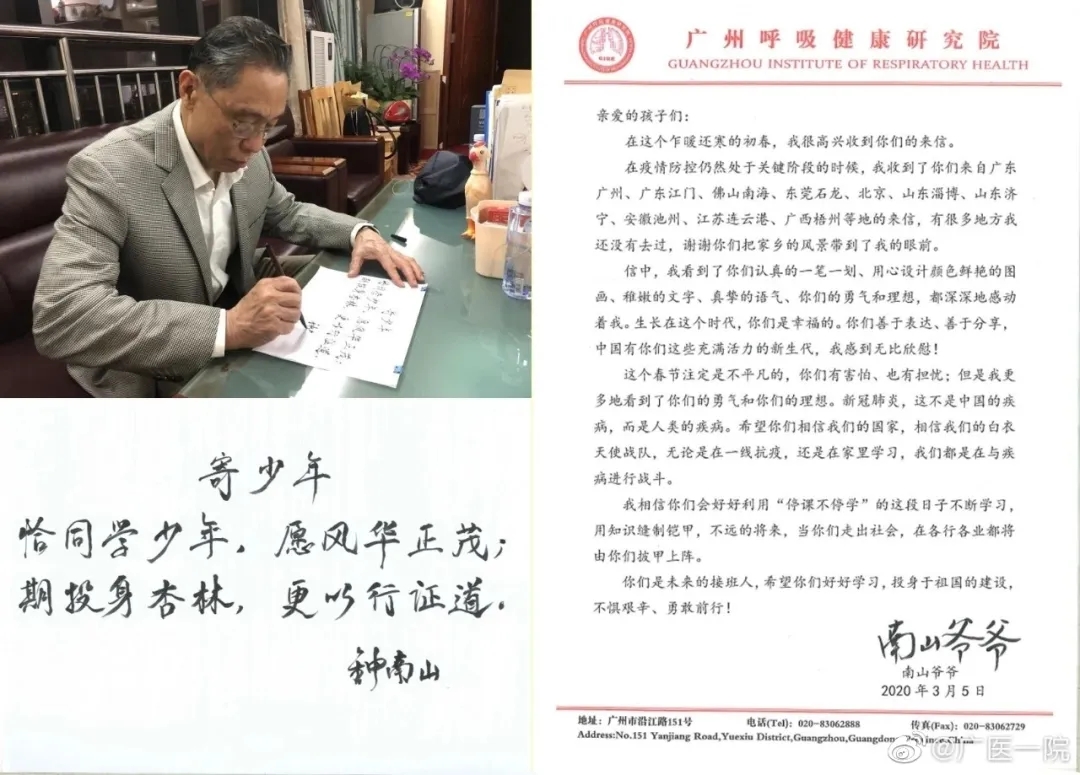 寄少年
恰同学少年，愿风华正茂；
期投身杏林，更以行证道。
钟南山
广州呼吸健康研究院
GUANGZHOU INSTITUTE OF RESPIRATORY HEALTH
亲爱的孩子们：
在这个乍暖还寒的初春，我很高兴收到你们的来信。
在疫情防控仍然处于关键阶段的时候，我收到了你们来自广东
广州、广东江门、佛山南海、东莞石龙、北京、山东淄博、山东济
宁、安徽池州、江苏连云港、广西梧州等地的来信，有很多地方我
还没有去过，谢谢你们把家乡的风景带到了我的眼前。
信中，我看到了你们认真的一笔一划、用心设计颜色鲜艳的图
画、稚嫩的文字、真挚的语气、你们的勇气和理想，都深深地感动
着我。生长在这个时代，你们是幸福的。你们善于表达、善于分享，
中国有你们这些充满活力的新生代，我感到无比欣慰！
这个春节注定是不平凡的，你们有害怕、也有担忧；但是我更
多地看到了你们的勇气和你们的理想。新冠肺炎，这不是中国的疾
病，而是人类的疾病。希望你们相信我们的国家，相信我们的白衣
天使战队，无论是在一线抗疫，还是在家里学习，我们都是在与疾
病进行战斗。
我相信你们会好好利用“停课不停学”的这段日子不断学习，
用知识缝制铠甲，不远的将来，当你们走出社会，在各行各业都将
由你们披甲上阵。
你们是未来的接班人，希望你们好好学习，投身于祖国的建设，
不惧艰辛、勇敢前行！
南山爷爷
南山爷爷
2020年3月5日
地址：广州市沿江路151号 电话(Tel)：020-83062888 传真(Fax)：020-83062729
Address:No.151 Yanjiang Road,Yuexiu District,Guangzhou,Guangdong Province.China
@广医一院